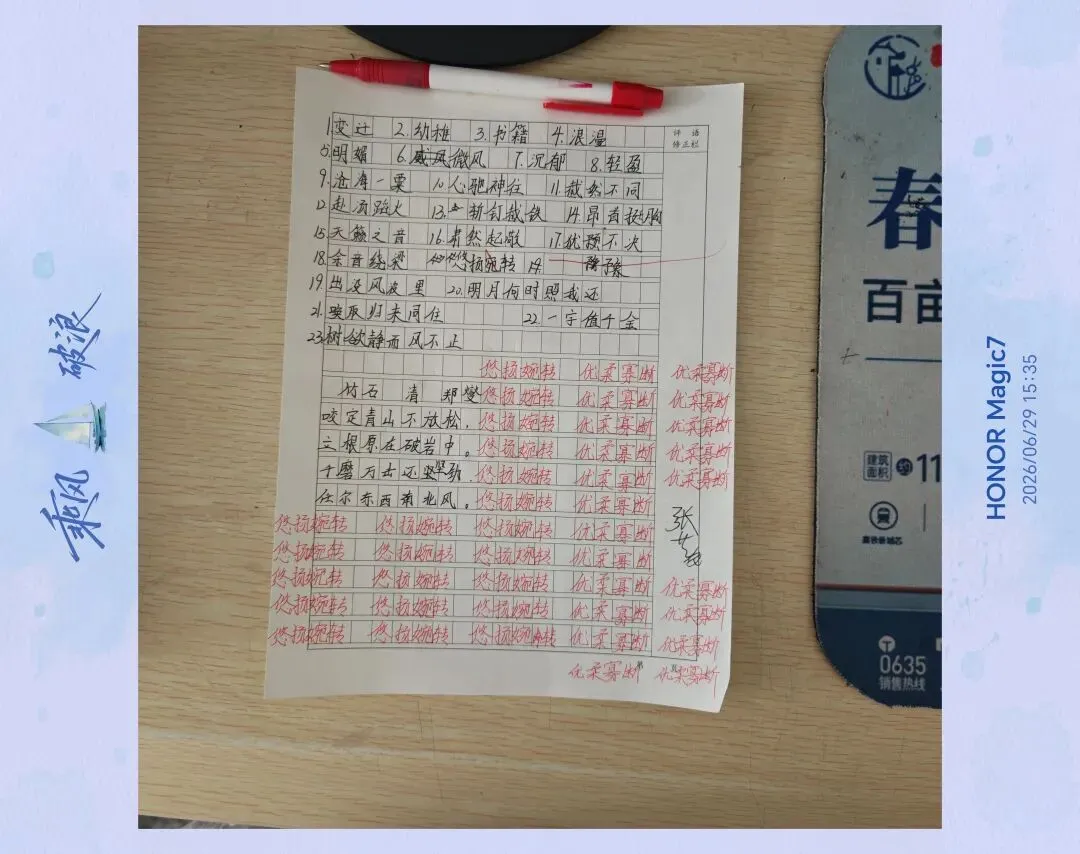 评语
修正栏
1.变迁 2.幼稚 3.书籍 4.浪漫
5.明媚 6.微风 7.沉郁 8.轻盈
9.沧海一粟 10.心驰神往 11.截然不同
12.赴汤蹈火 13.斩钉截铁 14.昂首挺胸
15.天籁之音 16.肃然起敬 17.犹颖不决
18.余音绕梁 悠扬婉转 豫
19.出没风波里 20.明月何时照我还
21.唤取归来同住 22.一字值千金
23.树欲静而风不止
悠扬婉转 优柔寡断 优柔寡断
竹石 清 郑燮 悠扬婉转 优柔寡断 优柔寡断
咬定青山不放松, 悠扬婉转 优柔寡断 优柔寡断
立根原在破岩中。 悠扬婉转 优柔寡断 优柔寡断
千磨万击还坚劲, 悠扬婉转 优柔寡断 优柔寡断
任尔东西南北风。 悠扬婉转 优柔寡断
悠扬婉转 悠扬婉转 悠扬婉转 优柔寡断
悠扬婉转 悠扬婉转 悠扬婉转 优柔寡断
悠扬婉转 悠扬婉转 悠扬婉转 优柔寡断 优柔寡断
悠扬婉转 悠扬婉转 悠扬婉转 优柔寡断 优柔寡断
悠扬婉转 悠扬婉转 悠扬婉转 优柔寡断 优柔寡断
优柔寡断 优柔寡断
张
春
百亩
建筑面积 约 11
0635
销售热线
乘风 破浪
HONOR Magic7
2026/06/29 15:35